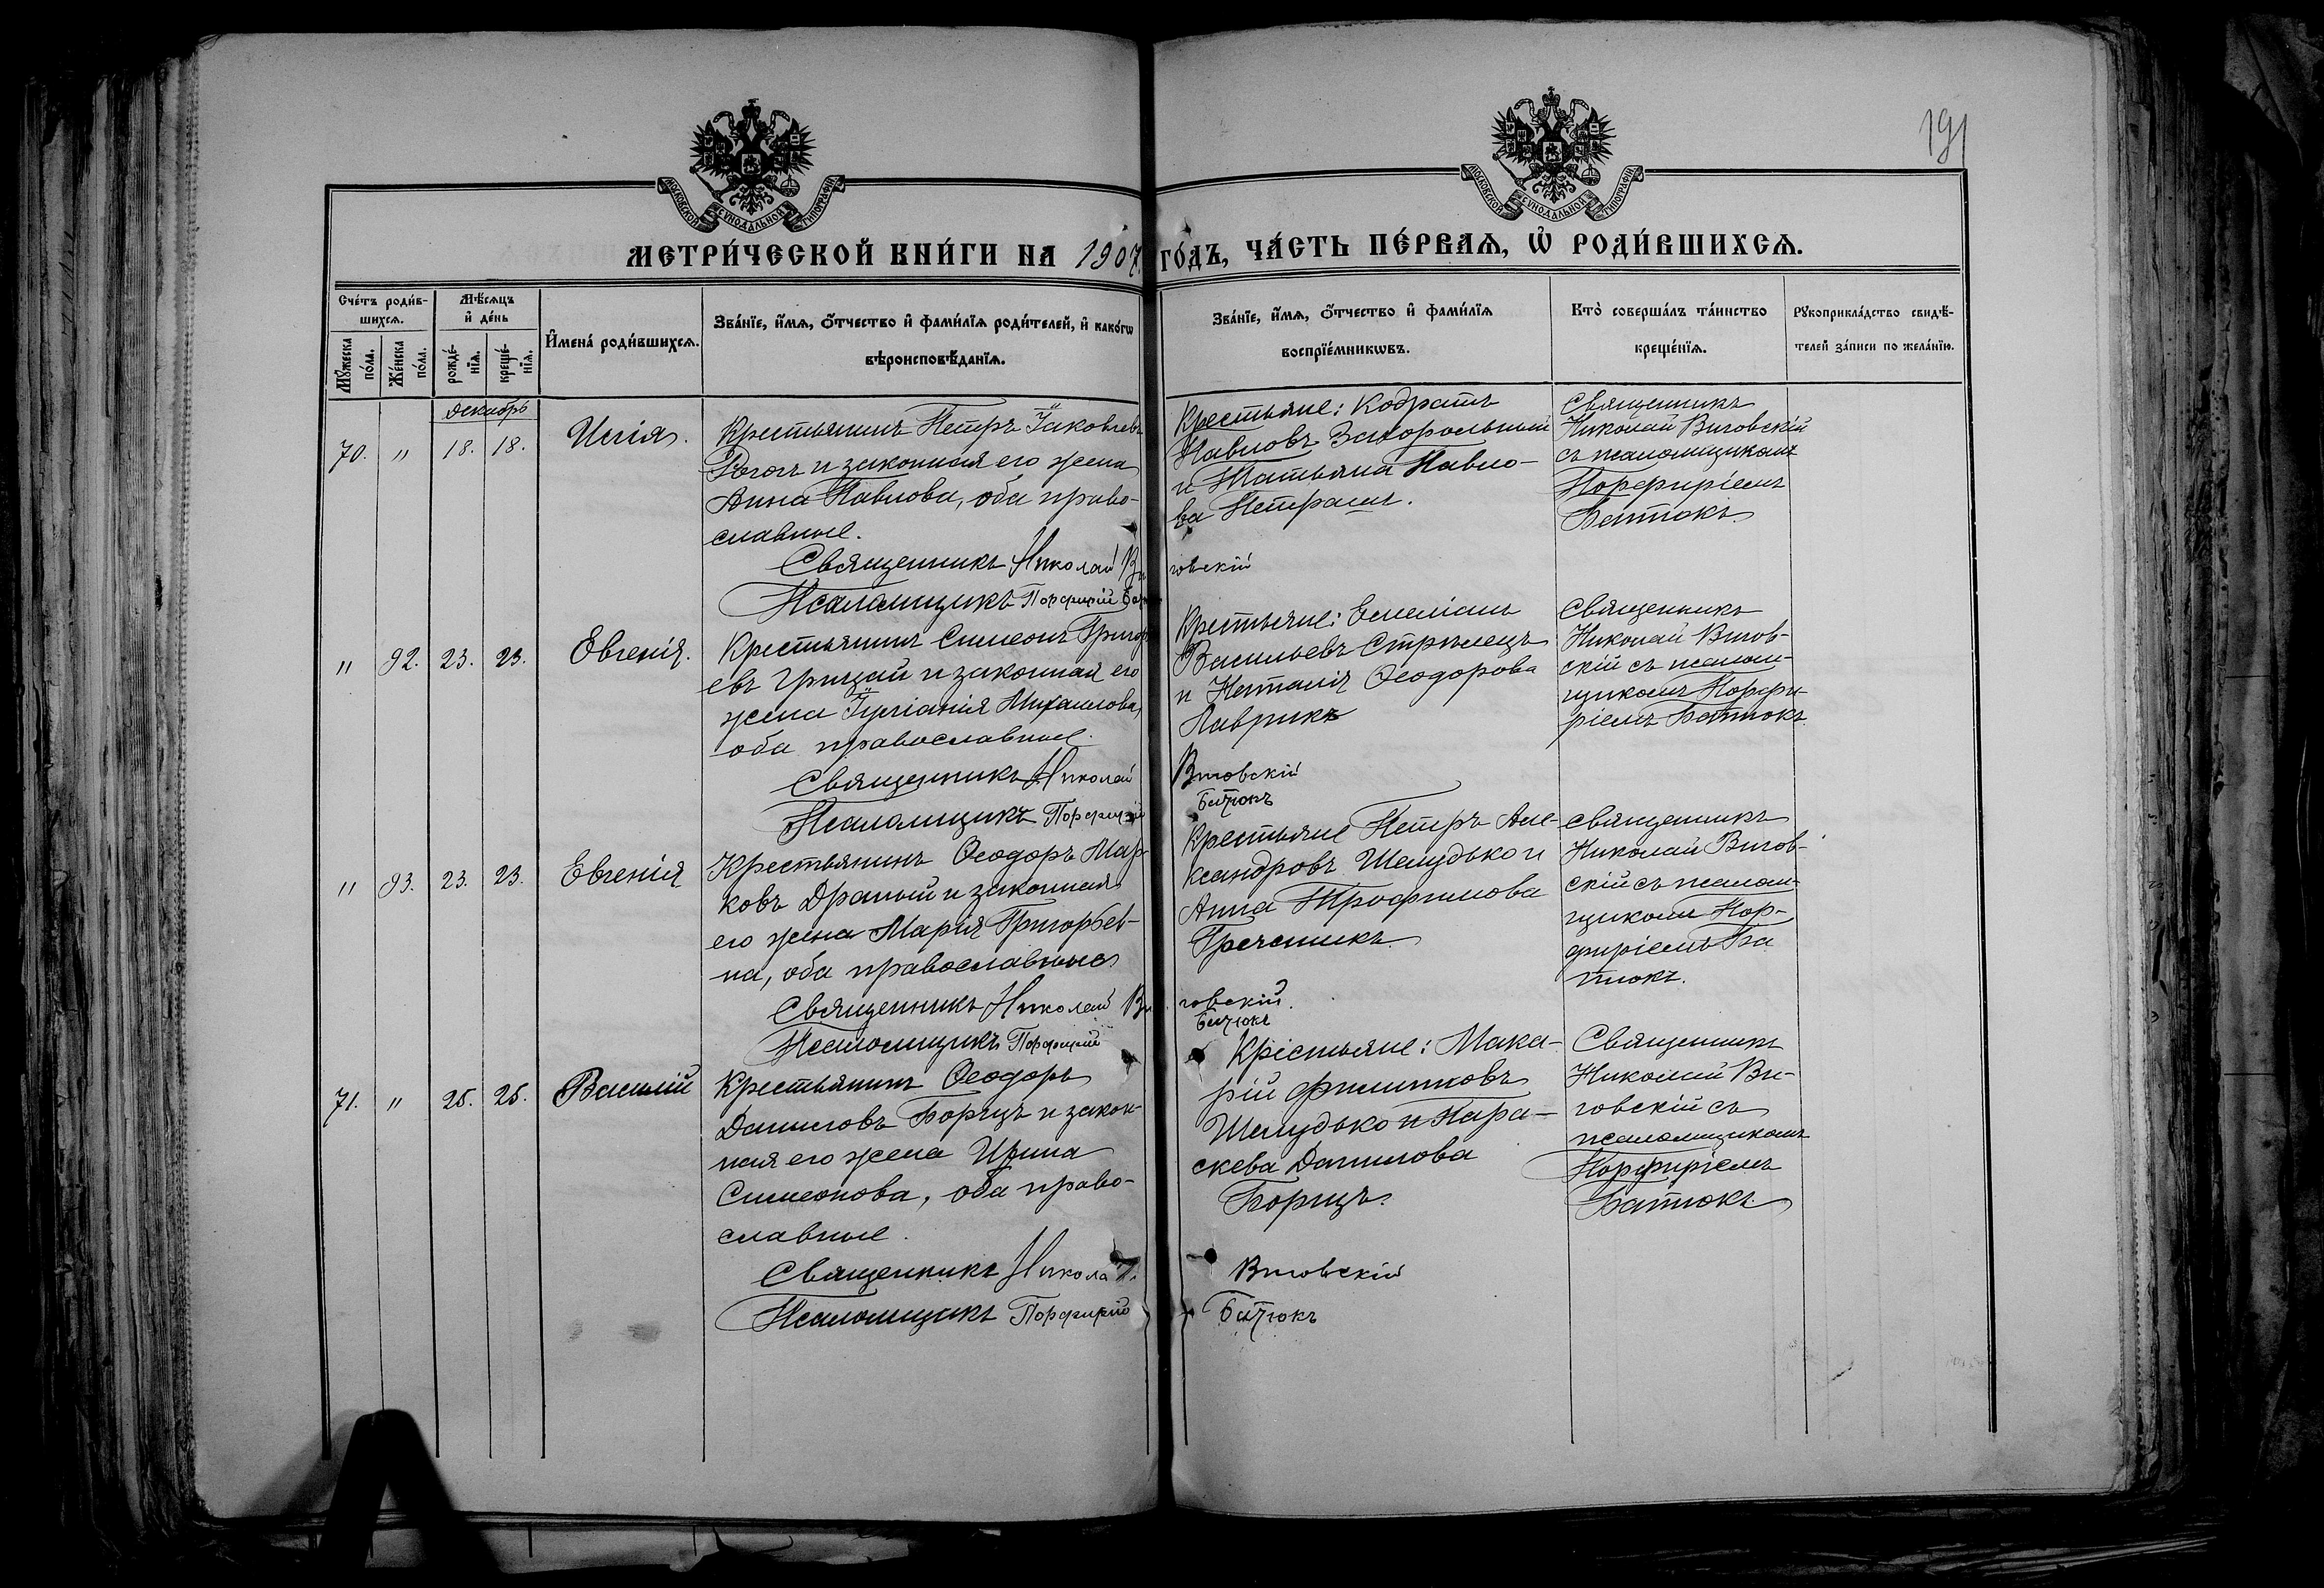 191
МОСКОВСКОЙ СѴНОДАЛЬНОЙ ТИПОГРАФІИ
МОСКОВСКОЙ СѴНОДАЛЬНОЙ ТИПОГРАФІИ
МЕТРИ́ЧЕСКОЙ КНИ́ГИ НА 1907 ГО́ДЪ, ЧА́СТЬ ПЕ́РВАѦ, Ѡ҆ РОДИ́ВШИХСѦ.
Сче́тъ роди́в-
шихсѧ.
Мꙋжеска по́ла.
Же́нска по́ла.
Мѣ́сѧцъ
и҆ де́нь
рожде́-
нїѧ.
креще́-
нїѧ.
И҆мена̀ роди́вшихсѧ.
Зва́нїе, и҆́мѧ, ѻ҆́тчество и҆ фами́лїѧ роди́телей, и҆ како́гѡ
вѣроисповѣ́данїѧ.
Зва́нїе, и҆́мѧ, ѻ҆́тчество и҆ фами́лїѧ
воспрїе́мникѡвъ.
Кто̀ соверша́лъ та́инство
креще́нїѧ.
Рꙋкоприкла́дство свидѣ́-
телей за́писи по жела́нїю.
декабрь
70. " 18. 18.
Илія.
Крестьянинъ Петръ Іаковлевъ
и законная его жена
Анна Павлова, оба право-
славные.
Священникъ Николай Ви
Псаломщикъ Порфирій
Крестьяне: Кодратъ
Павловъ
и Татьяна Павло-
ва Петраш.
говскій
Священникъ
Николай Виговскій
съ псаломщикомъ
Порфиріемъ
Батюкъ
" 92. 23. 23.
Евгенія.
Крестьянинъ Симеонъ Григорь
евъ Грицай и законная его
жена Іуліанія Михаилова,
оба православные.
Священникъ Николай
Псаломщикъ Порфирій
Крестьяне: Емеліанъ
Васильевъ Стрѣлецъ
и Наталія Ѳеодорова
Лаврикъ
Виговскій
Батюкъ
Священникъ
Николай Вигов-
скій съ псалом-
щикомъ Порфи-
ріемъ Батюкъ
" 93. 23. 23.
Евгенія
Крестьянинъ Ѳеодоръ Мар-
ковъ Драный и законная
его жена Марія Григорьев-
на, оба православные
Священникъ Николай Ви
Псаломщикъ Порфирій
Крестьяне Петръ Але-
ксандровъ Шелудько и
Анна Трофимова
Гречсникъ
говскій.
Батюкъ
Священникъ
Николай Вигов-
скій съ псалом-
щикомъ Пор-
фиріемъ Ба
тюкъ.
71. " 25. 25.
Василій
Крестьянинъ Ѳеодоръ
Даниловъ Борщъ и закон-
ная его жена Ирина
Симеонова, оба право-
славные.
Священникъ Николай
Псаломщикъ Порфирій
Крістьяне: Мака-
рій Филипповъ
Шелудько и Пара-
скева Данилова
Борщъ.
Виговскій
Батюкъ
Священникъ
Николай Ви-
говскій съ
псаломщикомъ
Порфиріемъ
Батюкъ